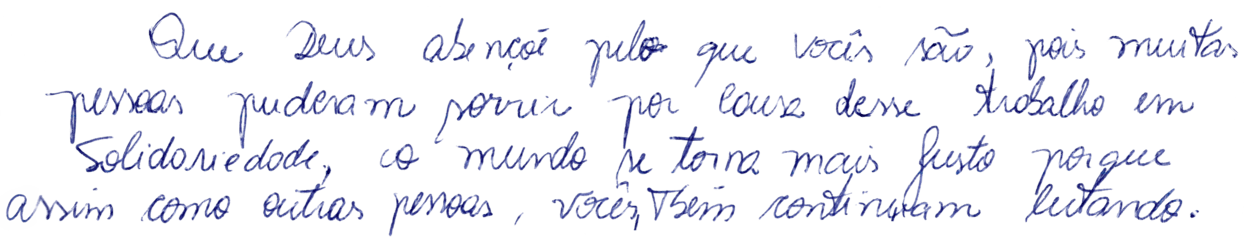 Que Deus abençoê pelo que vocês são, pois muitas
pessoas puderam sorrir por causa desse trabalho em
Solidariedade, o mundo se torna mais justo porque
assim como outras pessoas, vocês, Tbém continuam lutando.